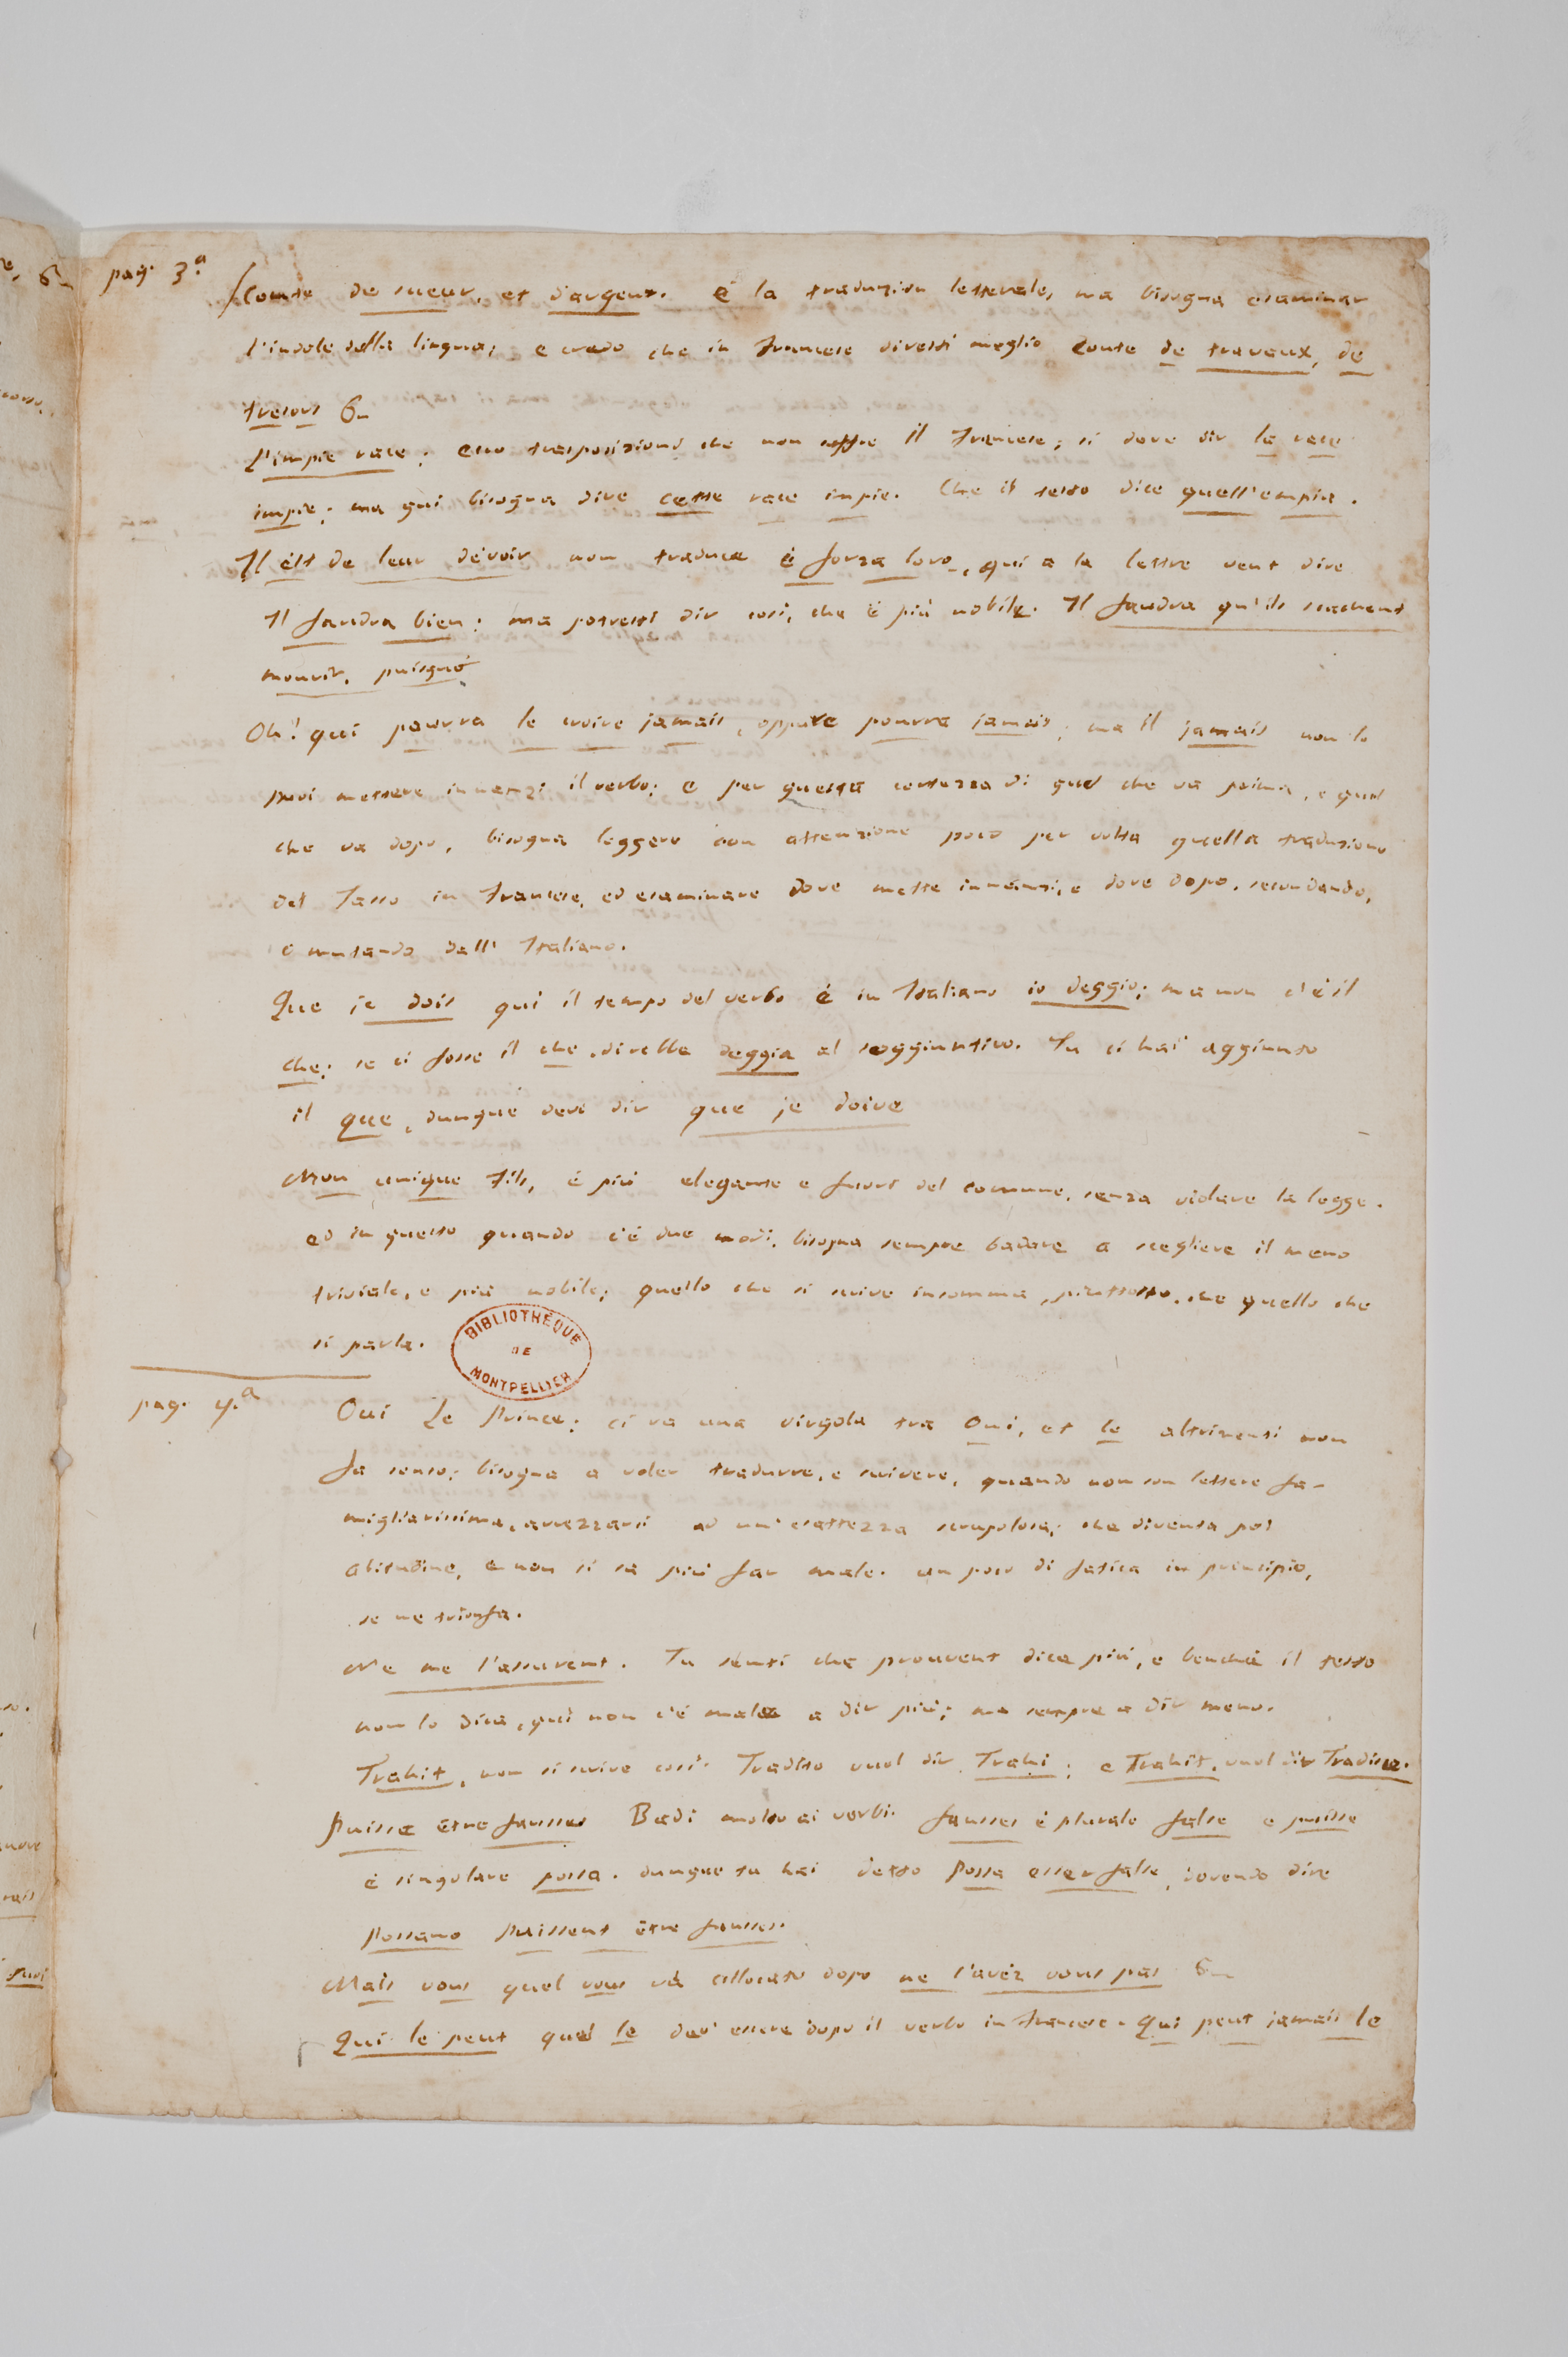 pag. 3.a
Coute de sueur, et d'argent. è la traduzion letterale, ma bisogna esaminar
l'indole della lingua; e credo che in francese diresti meglio Coute de traveux, de
tresors &
L'impie race; ecco trasposizione che non soffre il Francese; si deve dir la race
impie; ma qui bisogna dire cette race impie. Che il testo dice quell'empia.
Il èst de leur dévoir non traduce è forza loro, qui a la lettre veut dire
Il faudra bien: ma potresti dir così, che è più nobile. Il faudra qu'ils sachent
mourir, puisque
Oh! qui pourra le croire jamais, oppure pourra jamais; ma il jamais non lo
puoi mettere innanzi il verbo; e per questa certezza di quel che va prima, e quel
che va dopo, bisogna leggere con attenzione poco per volta quella traduzione
del Tasso in Francese, ed esaminare dove mette innanzi, e dove dopo, secondando,
o mutando dall' Italiano.
Que je dois qui il tempo del verbo è in Italiano io deggio; ma non c'è il
che; se ci fosse il che, direbbe deggia al soggiuntivo. Tu ci hai aggiunto
il que, dunque devi dir que je doive
Mon unique fils, è più elegante e fuori del comune, senza violare la legge.
ed in questo quando c'è due modi, bisogna sempre badare a scegliere il meno
triviale, e più nobile; quello che si scrive insomma, piuttosto, che quello che
si parla.
BIBLIOTHÈQUE
DE
MONTPELLIER
pag. 4.a
Oui Le Prince; ci va una virgola tra Oui, et le altrimenti non
fa senso; bisogna a voler tradurre, e scrivere, quando non son lettere fa-
migliarissime, avvezzarsi ad un' esattezza scrupolosa; che diventa poi
abitudine, e non si sa più far male. un poco di fatica in principio,
se ne trionfa.
Ne me l'assurent. Tu senti che prouvent dice più, e benchè il testo
non lo dica, qui non c'è male a dir più; ma sempre a dir meno.
Trahit, non si scrive così. Tradito vuol dir Trahi; e Trahit, vuol dir Tradisce.
Puisse être fausses Badi molto ai verbi. fausses è plurale false e puisse
è singolare possa. dunque tu hai detto Possa esser false, dovendo dire
Possano Puissent être fausses.
Mais vous quel vous và collocato dopo ne l'avéz vous pas &
Qui le peut quel le dev' essere dopo il verbo in francese. Qui peut jamais le